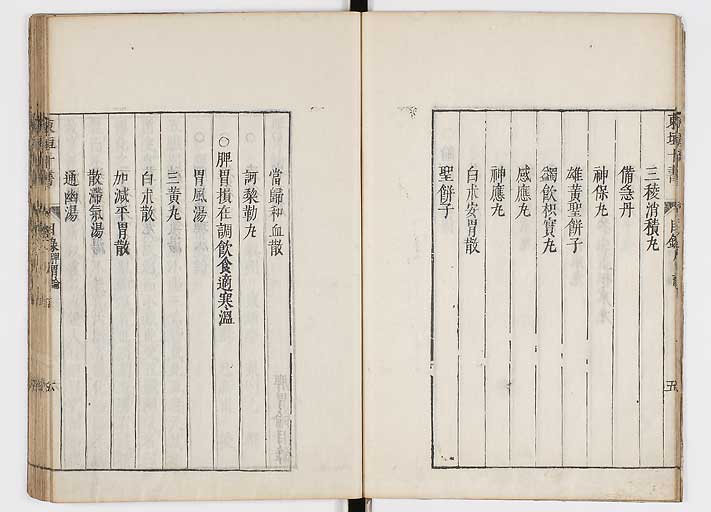 三稜消積丸
備急丹
神保丸
雄黃聖餅子
蠲飲枳實丸
感應丸
神應丸
白朮安胃散
聖餅子
當歸和血散
訶黎勒丸
○脾胃損在調飲食適寒溫
胃風湯
三黃丸
白朮散
加減平胃散
散滯氣湯
通幽湯
東垣十書 目錄脾胃論